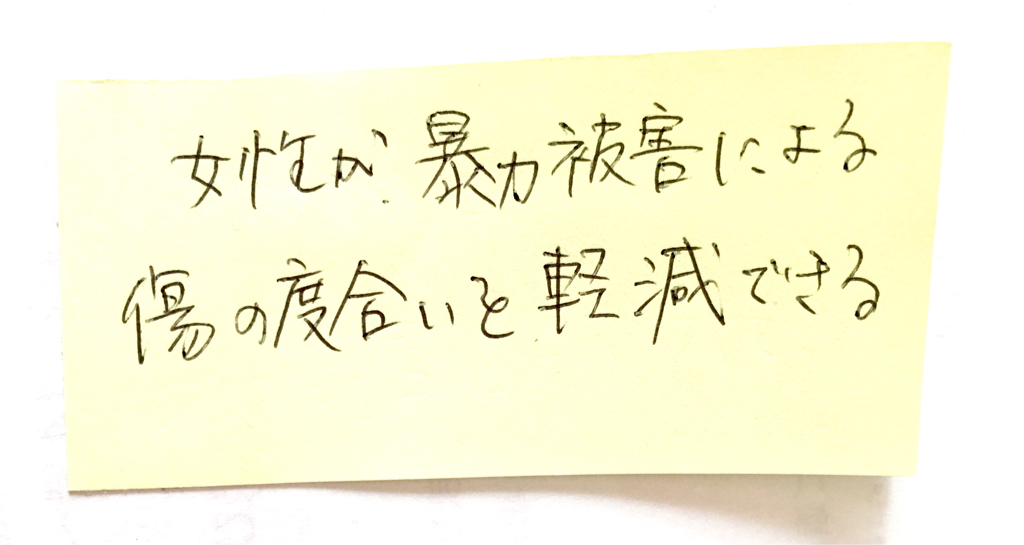 女性が暴力被害による
傷の度合いを軽減できる